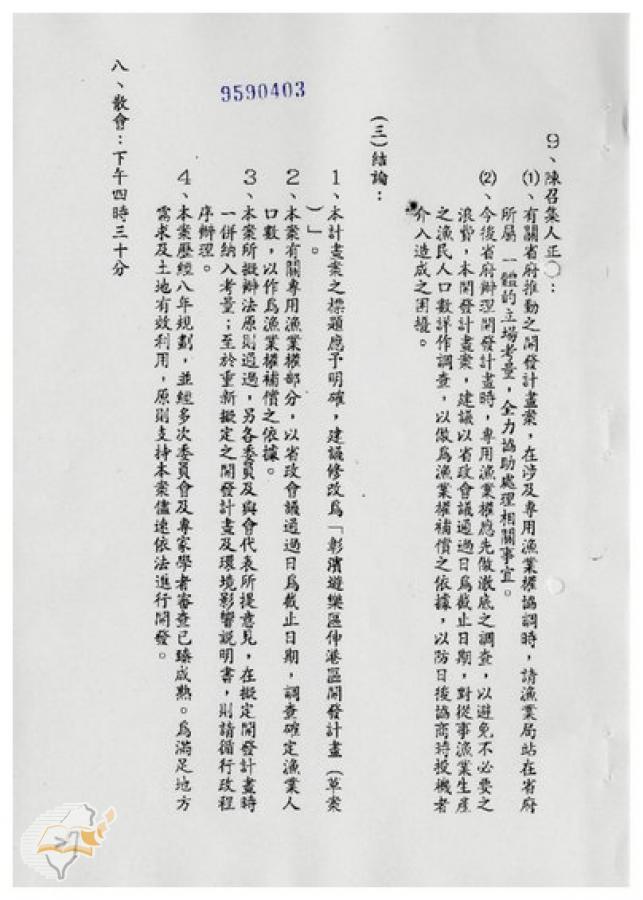 9、陳召集人正○：
⑴、有關省府推動之開發計畫案，在涉及專用漁業權協調時，請漁業局站在省府
所屬一體的立場考量，全力協助處理相關事宜。
⑵、今後省府辦理開發計畫時，專用漁業權應先做澈底之調查，以避免不必要之
浪費，本開發計畫案，建議以省政會議通過日為截止日期，對從事漁業生產
之漁民人口數詳作調查，以做為漁業權補償之依據，以防日後協商時投機者
介入造成之困擾。
(三)結論：
1、本計畫案之標題應予明確，建議修改為「彰濱遊樂區伸港區開發計畫（草案
）」。
2、本案有關專用漁業權部分，以省政會議通過日為截止日期，調查確定漁業人
口數，以作為漁業權補償之依據。
3、本案所擬辦法原則通過，另各委員及與會代表所提意見，在擬定開發計畫時
一併納入考量；至於重新擬定之開發計畫及環境影響說明書，則請循行政程
序辦理。
4、本案歷經八年規劃，並經多次委員會及專家學者審查已臻成熟。為滿足地方
需求及土地有效利用，原則支持本案儘速依法進行開發。
八、散會：下午四時三十分
9590403